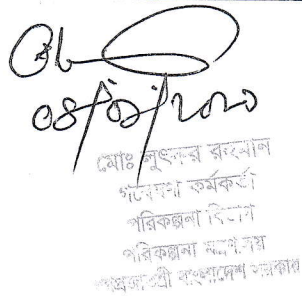 ০৪/০৯/২০২০
মোঃ লুৎফর রহমান
গবেষণা কর্মকর্তা
পরিকল্পনা বিভাগ
পরিকল্পনা মন্ত্রণালয়
গণপ্রজাতন্ত্রী বাংলাদেশ সরকার